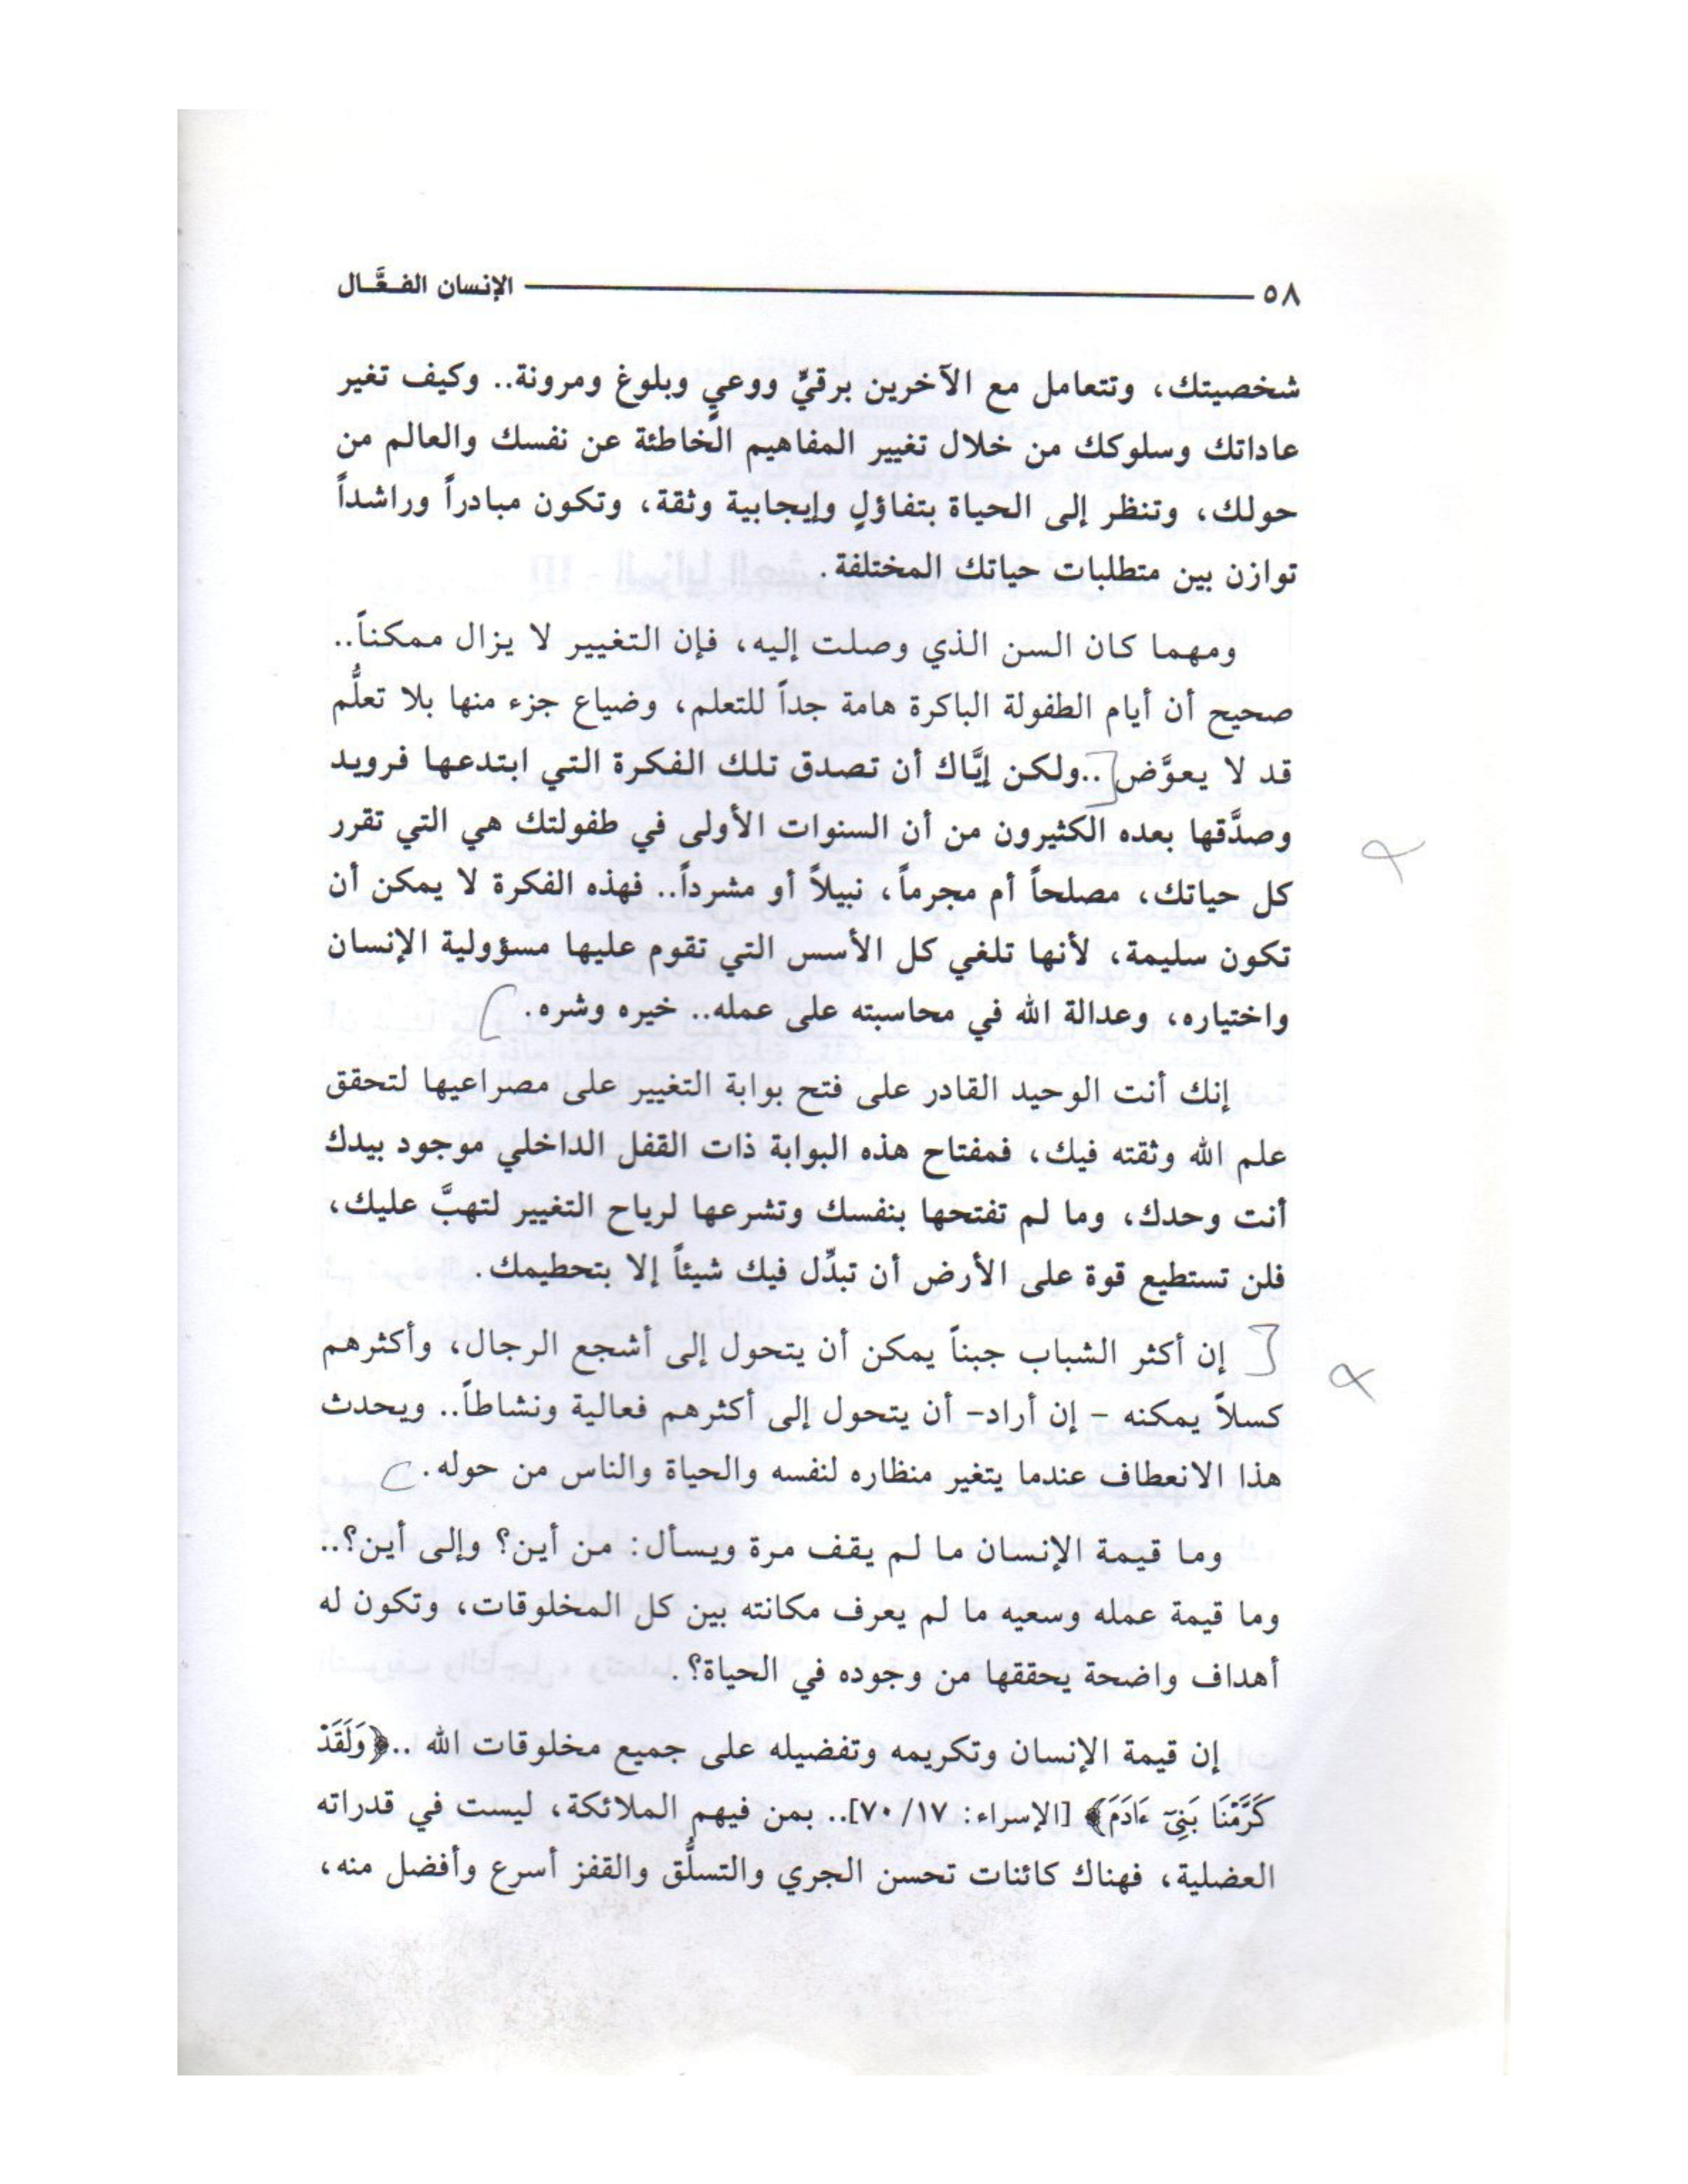 ٥٨ الإنسان الفـعَّـال
شخصيتك، وتتعامل مع الآخرين برقيٍّ ووعيٍ وبلوغ ومرونة.. وكيف تغير
عاداتك وسلوكك من خلال تغيير المفاهيم الخاطئة عن نفسك والعالم من
حولك، وتنظر إلى الحياة بتفاؤلٍ وإيجابية وثقة، وتكون مبادراً وراشداً
توازن بين متطلبات حياتك المختلفة.
ومهما كان السن الذي وصلت إليه، فإن التغيير لا يزال ممكناً..
صحيح أن أيام الطفولة الباكرة هامة جداً للتعلم، وضياع جزء منها بلا تعلُّم
قد لا يعوَّض ..ولكن إيَّاك أن تصدق تلك الفكرة التي ابتدعها فرويد
وصدَّقها بعده الكثيرون من أن السنوات الأولى في طفولتك هي التي تقرر
كل حياتك، مصلحاً أم مجرماً، نبيلاً أو مشرداً.. فهذه الفكرة لا يمكن أن
تكون سليمة، لأنها تلغي كل الأسس التي تقوم عليها مسؤولية الإنسان
واختياره، وعدالة الله في محاسبته على عمله.. خيره وشره.
إنك أنت الوحيد القادر على فتح بوابة التغيير على مصراعيها لتحقق
علم الله وثقته فيك، فمفتاح هذه البوابة ذات القفل الداخلي موجود بيدك
أنت وحدك، وما لم تفتحها بنفسك وتشرعها لرياح التغيير لتهبَّ عليك،
فلن تستطيع قوة على الأرض أن تبدِّل فيك شيئاً إلا بتحطيمك.
إن أكثر الشباب جبناً يمكن أن يتحول إلى أشجع الرجال، وأكثرهم
كسلاً يمكنه - إن أراد- أن يتحول إلى أكثرهم فعالية ونشاطاً.. ويحدث
هذا الانعطاف عندما يتغير منظاره لنفسه والحياة والناس من حوله.
وما قيمة الإنسان ما لم يقف مرة ويسأل: من أين؟ وإلى أين؟..
وما قيمة عمله وسعيه ما لم يعرف مكانته بين كل المخلوقات، وتكون له
أهداف واضحة يحققها من وجوده في الحياة؟.
إن قيمة الإنسان وتكريمه وتفضيله على جميع مخلوقات الله ..﴿وَلَقَدْ
كَرَّمْنَا بَنِىٓ ءَادَمَ﴾ [الإسراء: ١٧/ ٧٠].. بمن فيهم الملائكة، ليست في قدراته
العضلية، فهناك كائنات تحسن الجري والتسلُّق والقفز أسرع وأفضل منه،